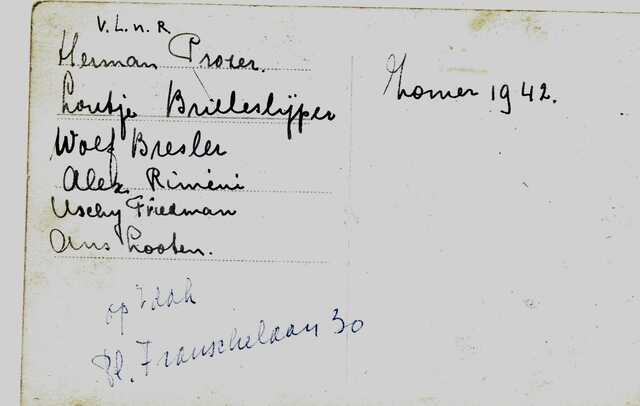 V. L. n. R
Herman Prozer.
Loutje Brilleslijper
Wolf Bresler
Alex. Riminini
Uschy Friedman
Ans Looten.
op 't dak
Pl. Franschelaan 30
Zomer 1942.